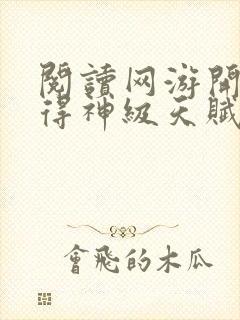 閱讀网游開
得神級天賦
會飛的木瓜